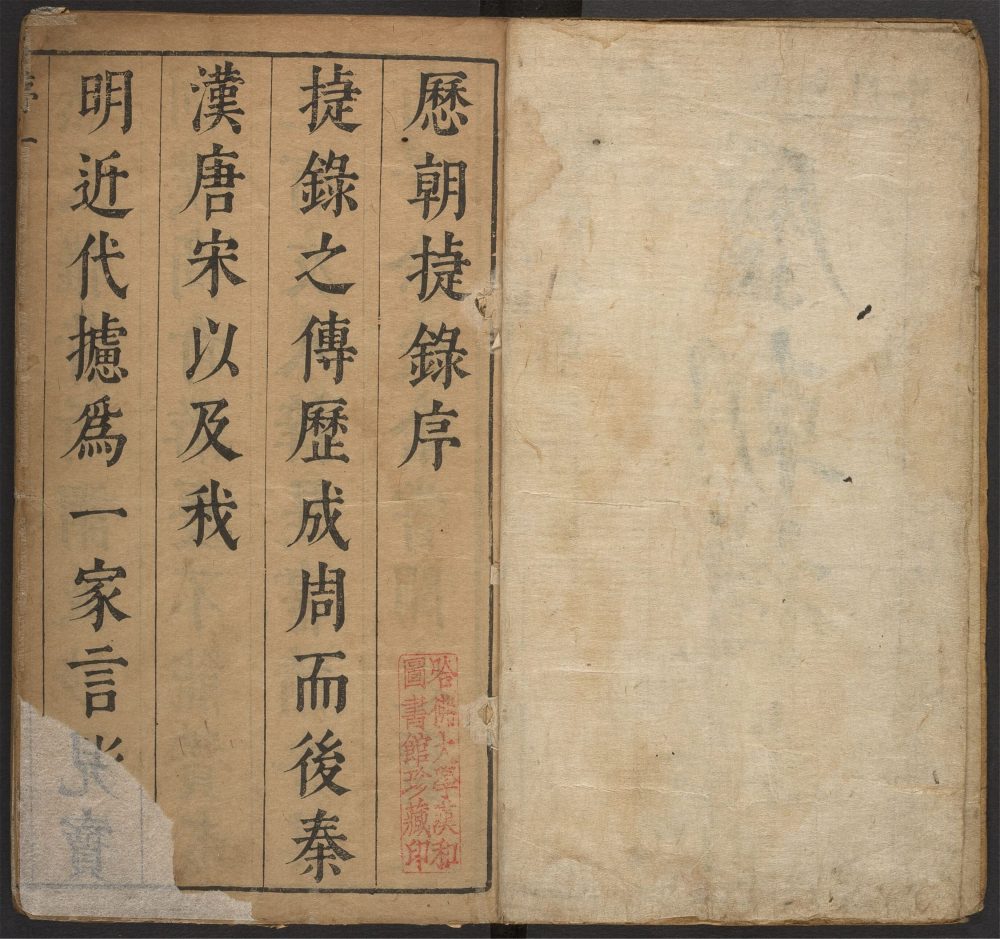 歷朝捷錄序
捷錄之傳歷成周而後秦
漢唐宋以及我
明近代攄爲一家言
序一
哈佛大學漢和
圖書館珍藏印